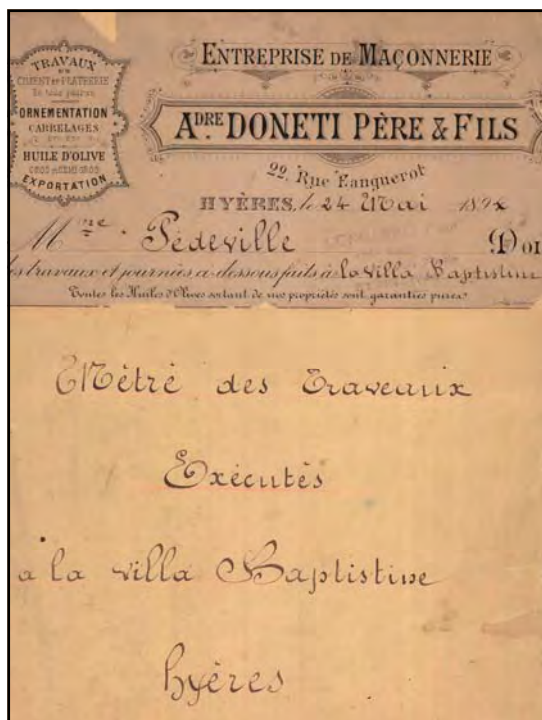 TRAVAUX
EN
CIMENT ET PLATRERIE
En tous genres
ORNEMENTATION
CARRELAGES
HUILE D'OLIVE
GROS ET DEMI-GROS
EXPORTATION
ENTREPRISE DE MAÇONNERIE
ADRE. DONETI PÈRE & FILS
22, Rue Fanguerot
HYÈRES, le 24 Mai 189
Mme. Pédeville Doi
les travaux et journées ci-dessous faits à la villa Baptistine
Toutes les Huiles d'Olives sortant de nos propriétés sont garanties pures.
Métré des Traveaux
Exécutés
a la villa Baptistine
hyères